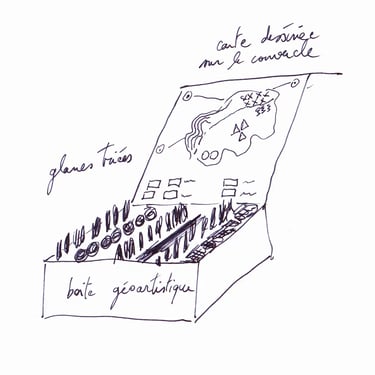 carte dessinée
sur le couvercle
glanes triées
boîte géoartistique